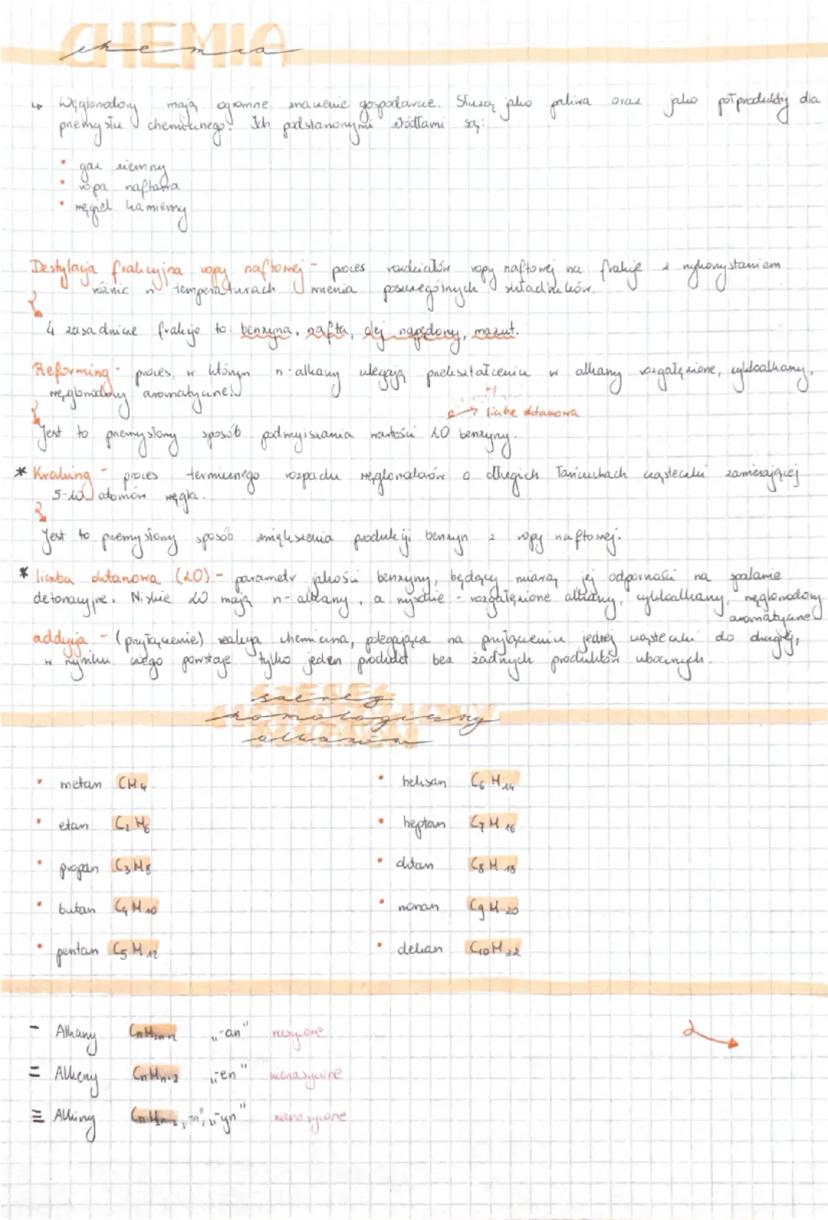 CHEMIA
chemia
↳ Węglowodory mają ogromne znaczenie gospodarcze. Służą jako paliwa oraz jako półprodukty dla
przemysłu chemicznego. Ich podstawowymi źródłami są:
• gaz ziemny
• ropa naftowa
• węgiel kamienny
Destylacja frakcyjna ropy naftowej - proces rozdziałów ropy naftowej na frakcje z wykorzystaniem
różnic w temperaturach wrzenia poszczególnych składników.
4 zasadnicze frakcje to: benzyna, nafta, olej napędowy, mazut.
Reforming - proces, w którym n-alkany ulegają przekształceniu w alkany rozgałęzione, cykloalkany,
węglowodory aromatyczne.
→ liczba oktanowa
Jest to przemysłowy sposób podwyższania wartości LO benzyny.
* Kraking - proces termicznego rozpadu węglowodorów o długich łańcuchach cząsteczki zawierającej
5-10 atomów węgla.
Jest to przemysłowy sposób zwiększenia produkcji benzyn z ropy naftowej.
* liczba oktanowa (LO) - parametr jakości benzyny, będący miarą jej odporności na spalanie
detonacyjne. Niskie LO mają n-alkany, a wysokie - rozgałęzione alkany, cykloalkany, węglowodory
aromatyczne
addycja - (przyłączenie) reakcja chemiczna, polegająca na przyłączeniu jednej cząsteczki do drugiej,
w wyniku czego powstaje tylko jeden produkt bez żadnych produktów ubocznych.
szereg
homologiczny
alkanów
• metan CH4
• heksan C6H14
• etan C2H6
• heptan C7H16
• propan C3H8
• oktan C8H18
• butan C4H10
• nonan C9H20
• pentan C5H12
• dekan C10H22
- Alkany CnH2n+2 „-an" nasycone
= Alkeny „-en" nienasycone
≡ Alkiny „-yn" nienasycone